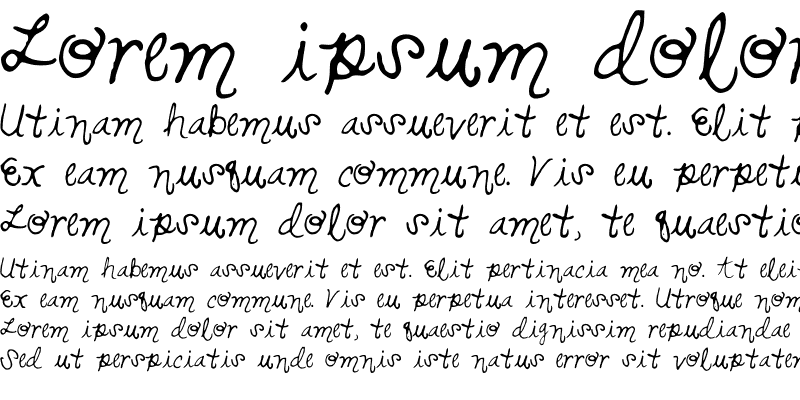 Lorem ipsum dolor
Utinam habemus assueverit et est. Elit
Ex eam nusquam commune. Vis eu perpetu
Lorem ipsum dolor sit amet, te quaestio
Utinam habemus assueverit et est. Elit pertinacia mea no. At elei
Ex eam nusquam commune. Vis eu perpetua interesset. Utroque nom
Lorem ipsum dolor sit amet, te quaestio dignissim repudiandae
Sed ut perspiciatis unde omnis iste natus error sit voluptatem